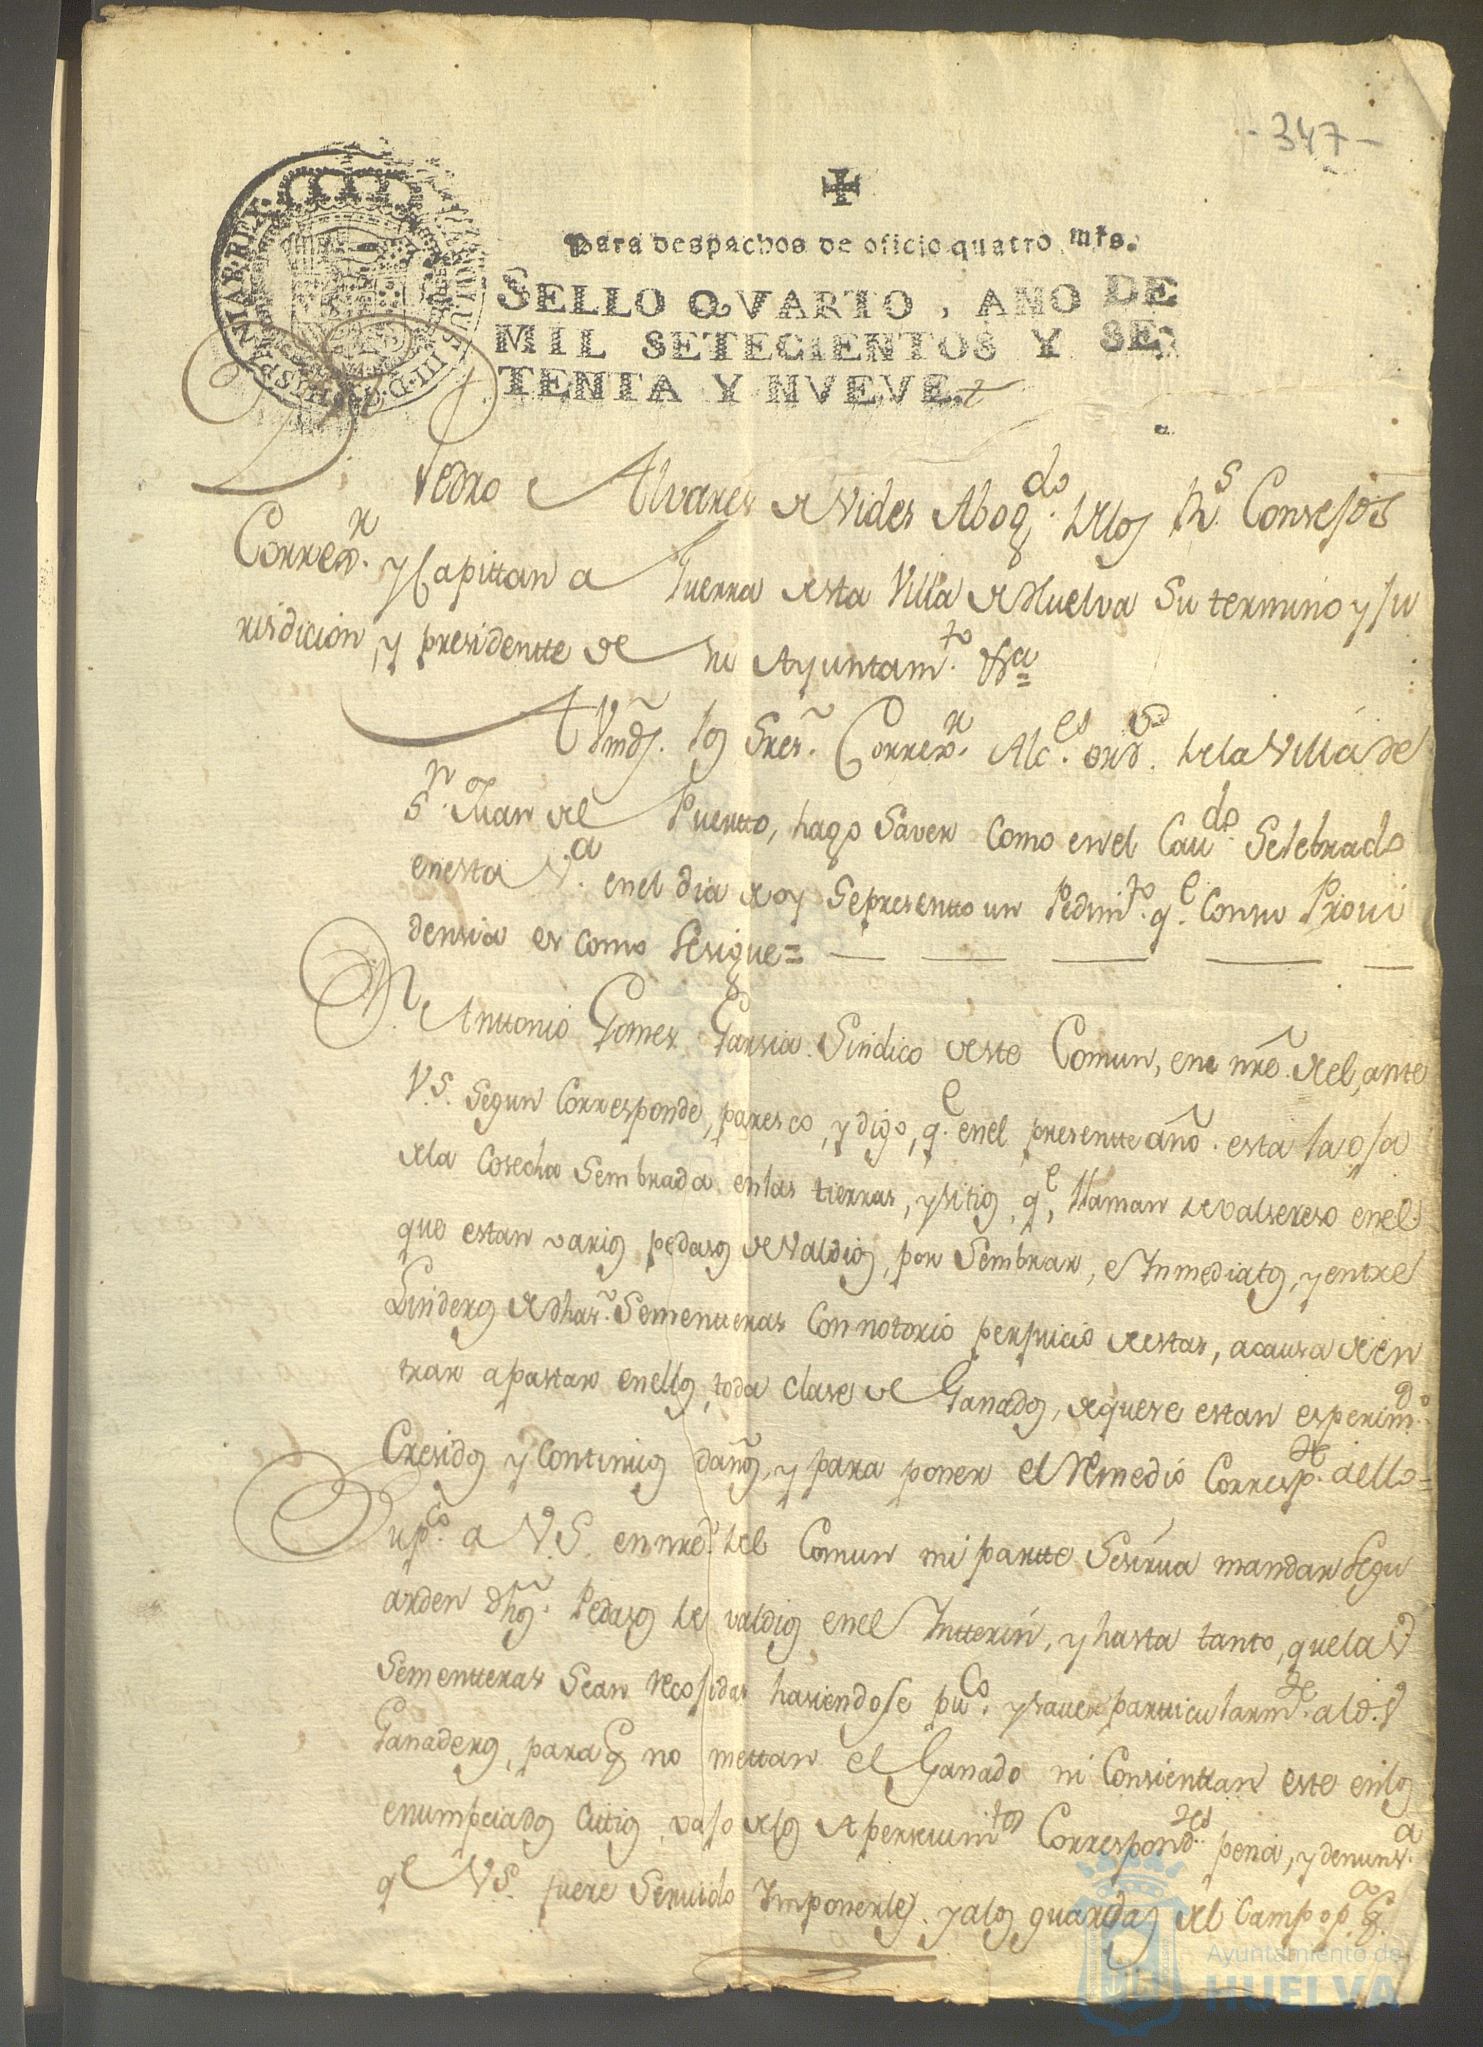 - 347 -
✠
Para despachos de oficio quatro mrs.
SELLO QVARTO, AÑO DE
MIL SETECIENTOS Y SE-
TENTA Y NVEVE.
HISPANIAR. REX
CAROLUS III. D. G.
Dn Pedro Alvares de Vides Abogdo. de los Rs. Consejos
Correxr. y Capittan a Guerra de esta Villa de Huelva Su termino y Ju
risdicion, y presidentte de su Ayuntamto. &a =
A Vmds. los Sres. Correxr. Alces. ord. de la Villa de
Sn. Juan del Puertto, hago Saver como en el Caudo. Selebrado
en esta Va. en el dia de oy Se presentto un Pedimto. qe. Con su Provi
densia es como Se sigue =
Dn. Anttonio Gomes Garsia Sindico de este Comun, en nre. de el, ante
V.S. Segun Corresponde, paresco, y digo, qe. en el presentte año. esta la oja
de la Cosecha Sembrada en las tierras, y sitios, qe, llaman de valsereso en el
que estan varios pedasos de Valdios, por Sembrar, e Inmediatos, y entre
Linderos de dhas. Sementteras Con notorio perjuicio de estas, a causa de en
trar a pastar en ellos, toda clase de Ganados, de que se estan esperimdo.
Cresidos y Continuos daños, y para poner el Remedio Corresp.te a ello =
Supco. a V.S. en nre. del Comun mi partte Se sirva mandar Se gu
arden dhos. Pedasos de valdios en el Intterin, y hasta tanto, que las
Sementteras Sean recojidas hasiendose puco. y saver particularmte. a los
Ganaderos, para q no mettan el Ganado ni Consientan este en los
enumpciados Citios, vajo de los Apersevimtos Correspondtes pena, y denunsa.
qe VS. fuere Servido Imponerles. y a los guardas del Campo pa. q.
Ayuntamiento de
HUELVA